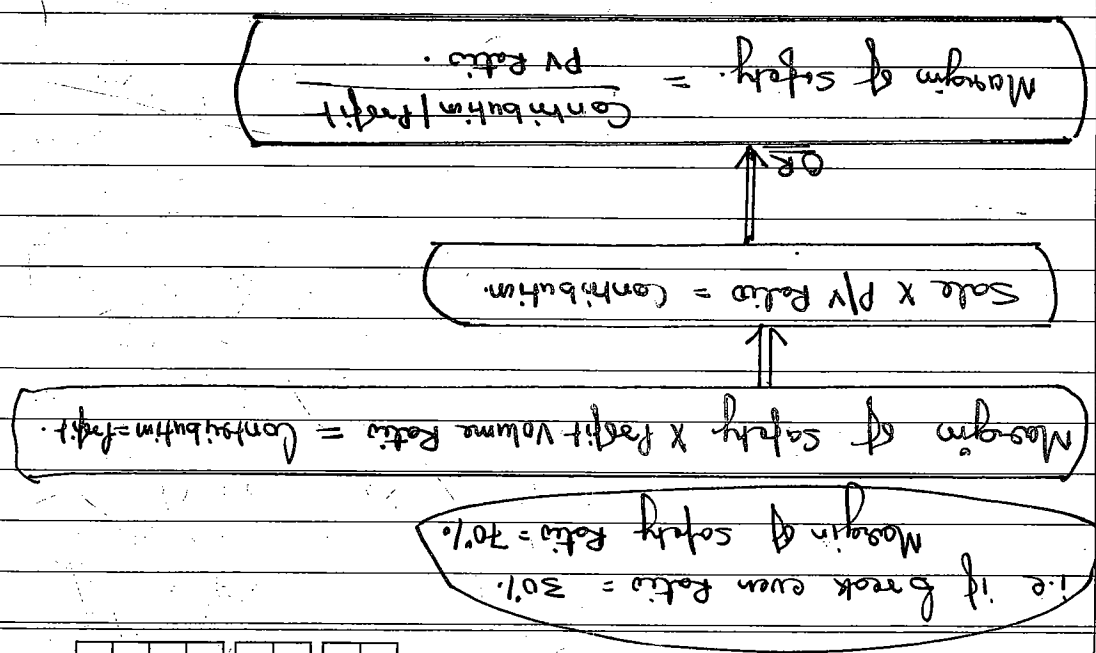 i.e if break even Ratio = 30%.
Margin of safety Ratio = 70%
Margin of Safety X Profit Volume Ratio = Contribution = Profit.
Sale X P/V Ratio = Contribution
OR
Margin of Safety. = Contribution / Profit
PV Ratio.